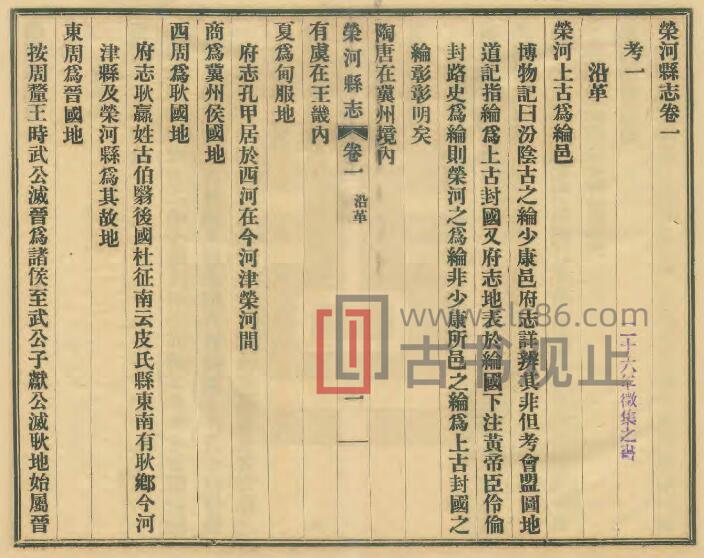 榮河縣志卷一
考一
沿革
榮河上古為綸邑
博物記曰汾陰古之綸少康邑府志詳辨其非但考會盟圖地
道記指綸為上古封國又府志地表於綸國下注黃帝臣伶倫
封路史為綸則榮河之為綸非少康所邑之綸為上古封國之
綸彰彰明矣
陶唐在冀州境內
有虞在王畿內
榮河縣志
卷一
沿革
一
夏為甸服地
府志孔甲居於西河在今河津榮河間
商為冀州侯國地
西周為耿國地
府志耿嬴姓古伯翳後國杜征南云皮氏縣東南有耿鄉今河
津縣及榮河縣為其故地
東周為晉國地
按周釐王時武公滅晉為諸侯至武公子獻公滅耿地始屬晉
二十六年徵集之書
www.cls86.com
古书视止